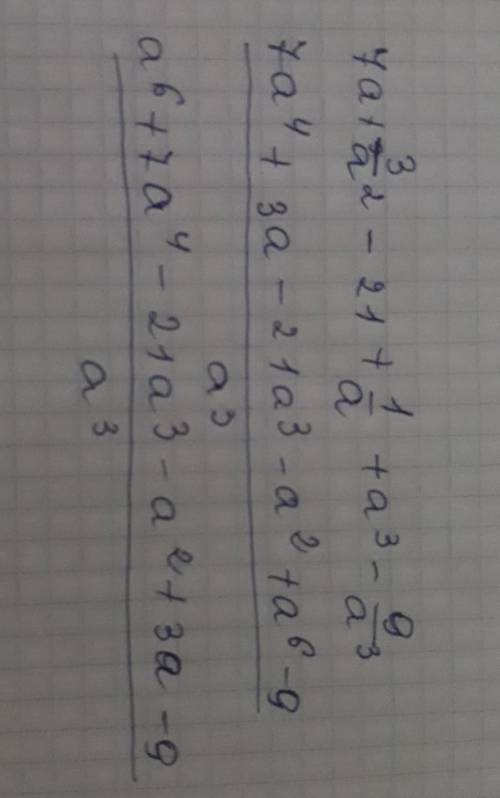 7a + 3/a² - 21 + 1/a + a³ - 9/a³
(7a⁴ + 3a - 21a³ - a² + a⁶ - 9)/a³
(a⁶ + 7a⁴ - 21a³ - a² + 3a - 9)/a³